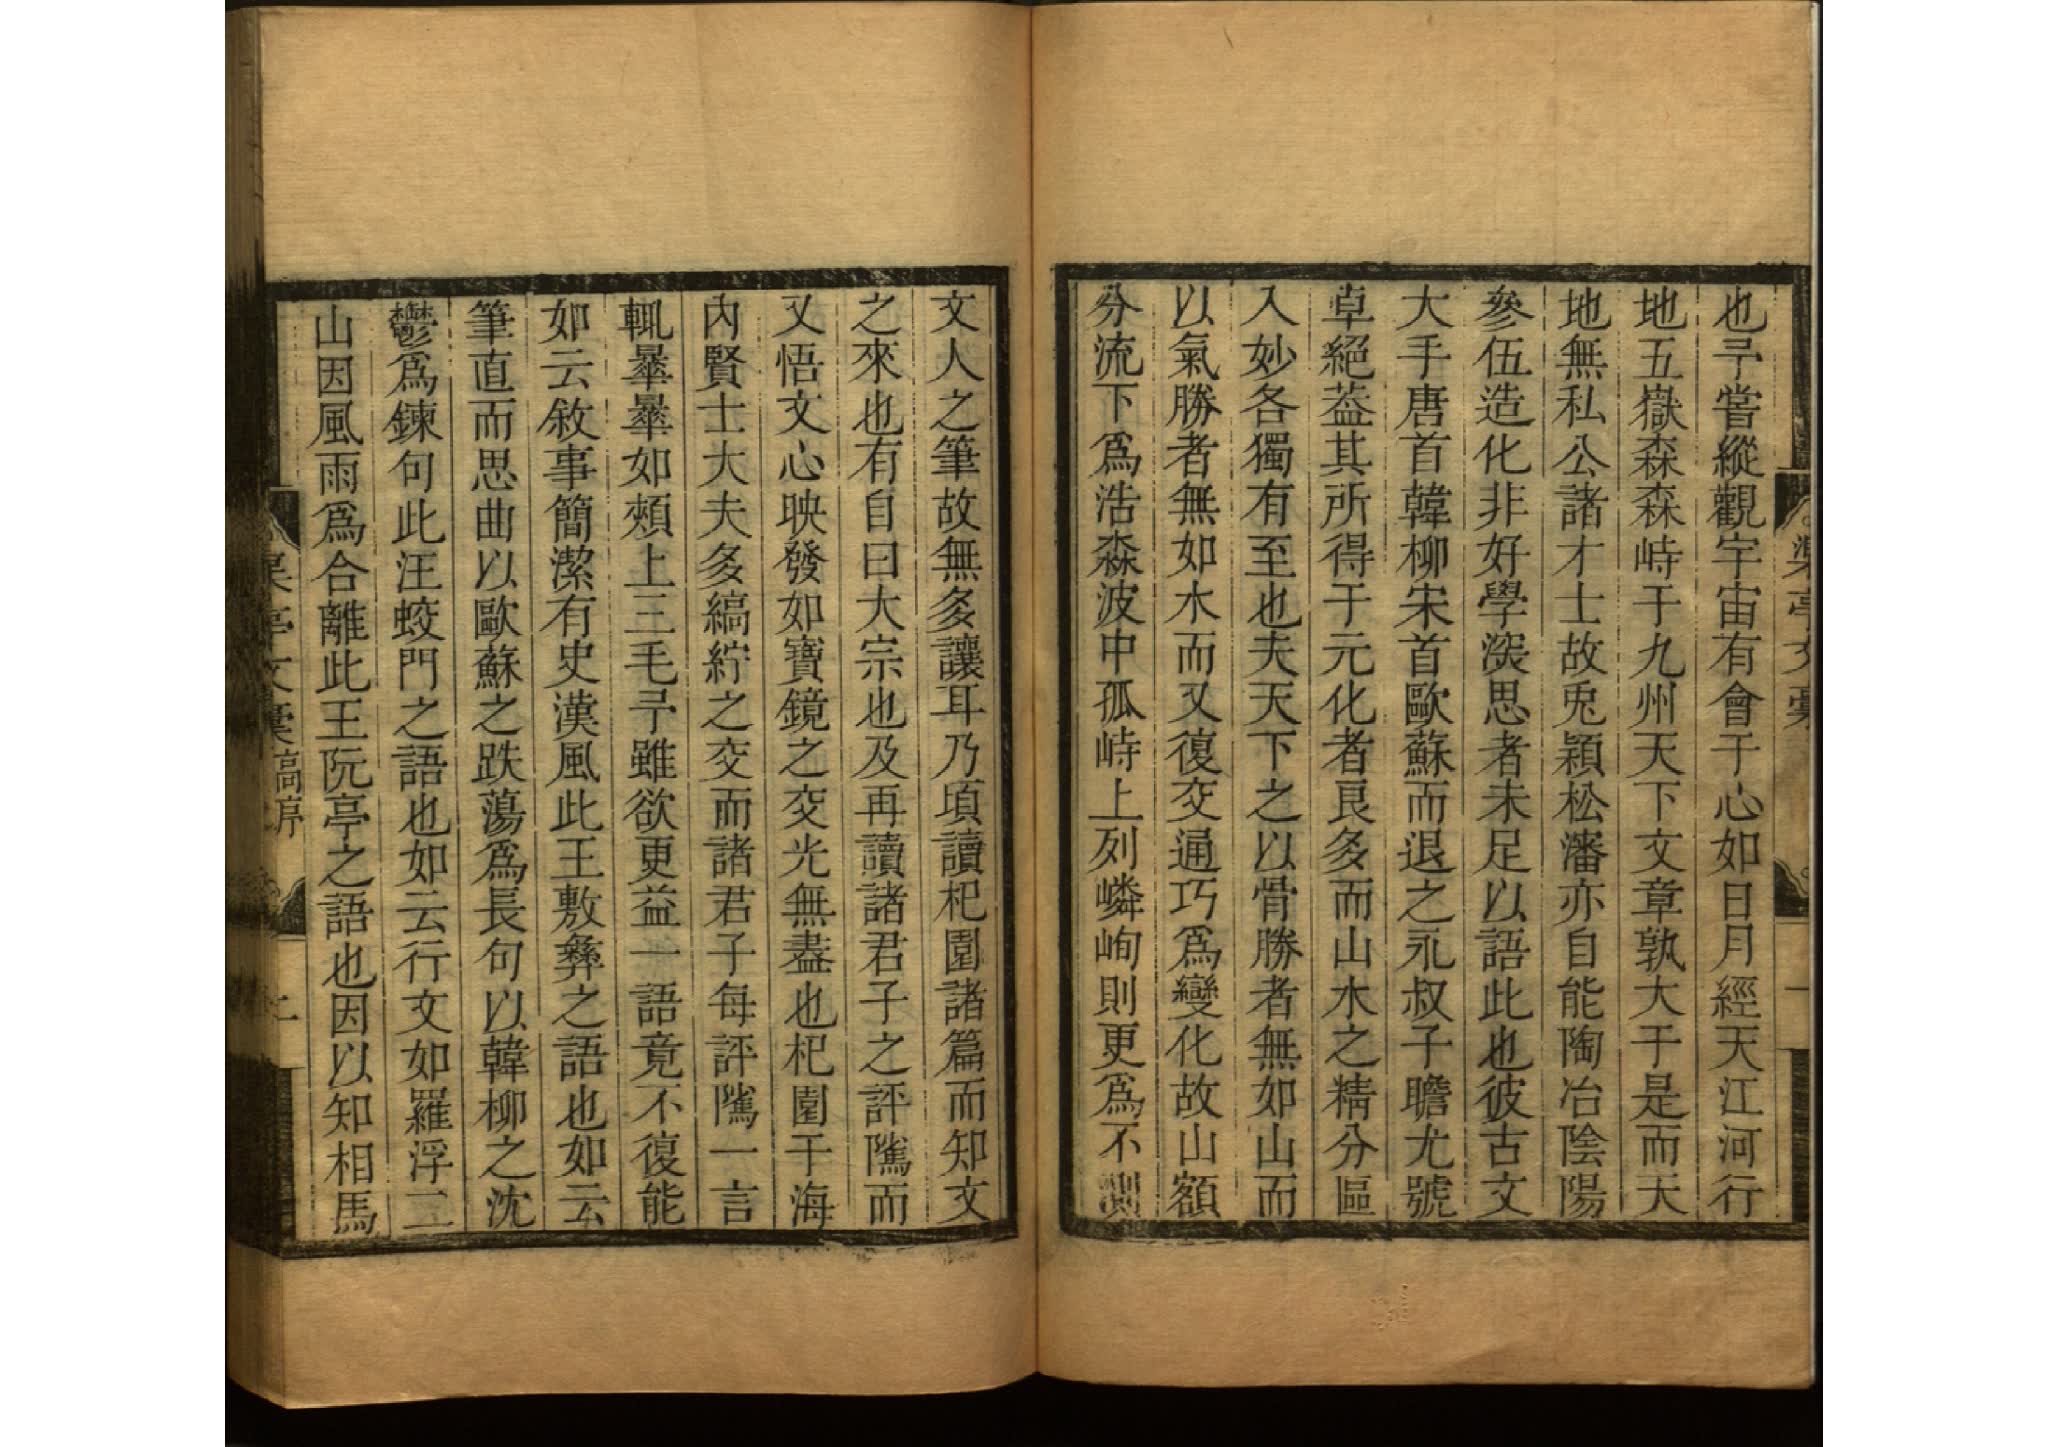 也予嘗縱觀宇宙有會于心如日月經天江河行
地五嶽森森峙于九州天下文章孰大于是而天
地無私公諸才士故兎穎松瀋亦自能陶冶陰陽
參伍造化非好學深思者未足以語此也彼古文
大手唐首韓柳宋首歐蘇而退之永叔子瞻尤號
卓絕葢其所得于元化者良多而山水之精分區
入妙各獨有至也夫天下之以骨勝者無如山而
以氣勝者無如水而又復交通巧爲變化故山額
分流下爲浩淼波中孤峙上列嶙峋則更爲不測
文人之筆故無多讓耳乃頃讀杞園諸篇而知文
之來也有自曰大宗也及再讀諸君子之評隲而
又悟文心映發如寶鏡之交光無盡也杞園于海
內賢士大夫多縞紵之交而諸君子每評隲一言
輒暴暴如頰上三毛予雖欲更益一語竟不復能
如云敘事簡潔有史漢風此王敷彝之語也如云
筆直而思曲以歐蘇之跌蕩爲長句以韓柳之沈
鬱爲鍊句此汪蛟門之語也如云行文如羅浮二
山因風雨爲合離此王阮亭之語也因以知相馬
渠亭文稾
一
渠亭文稾
二